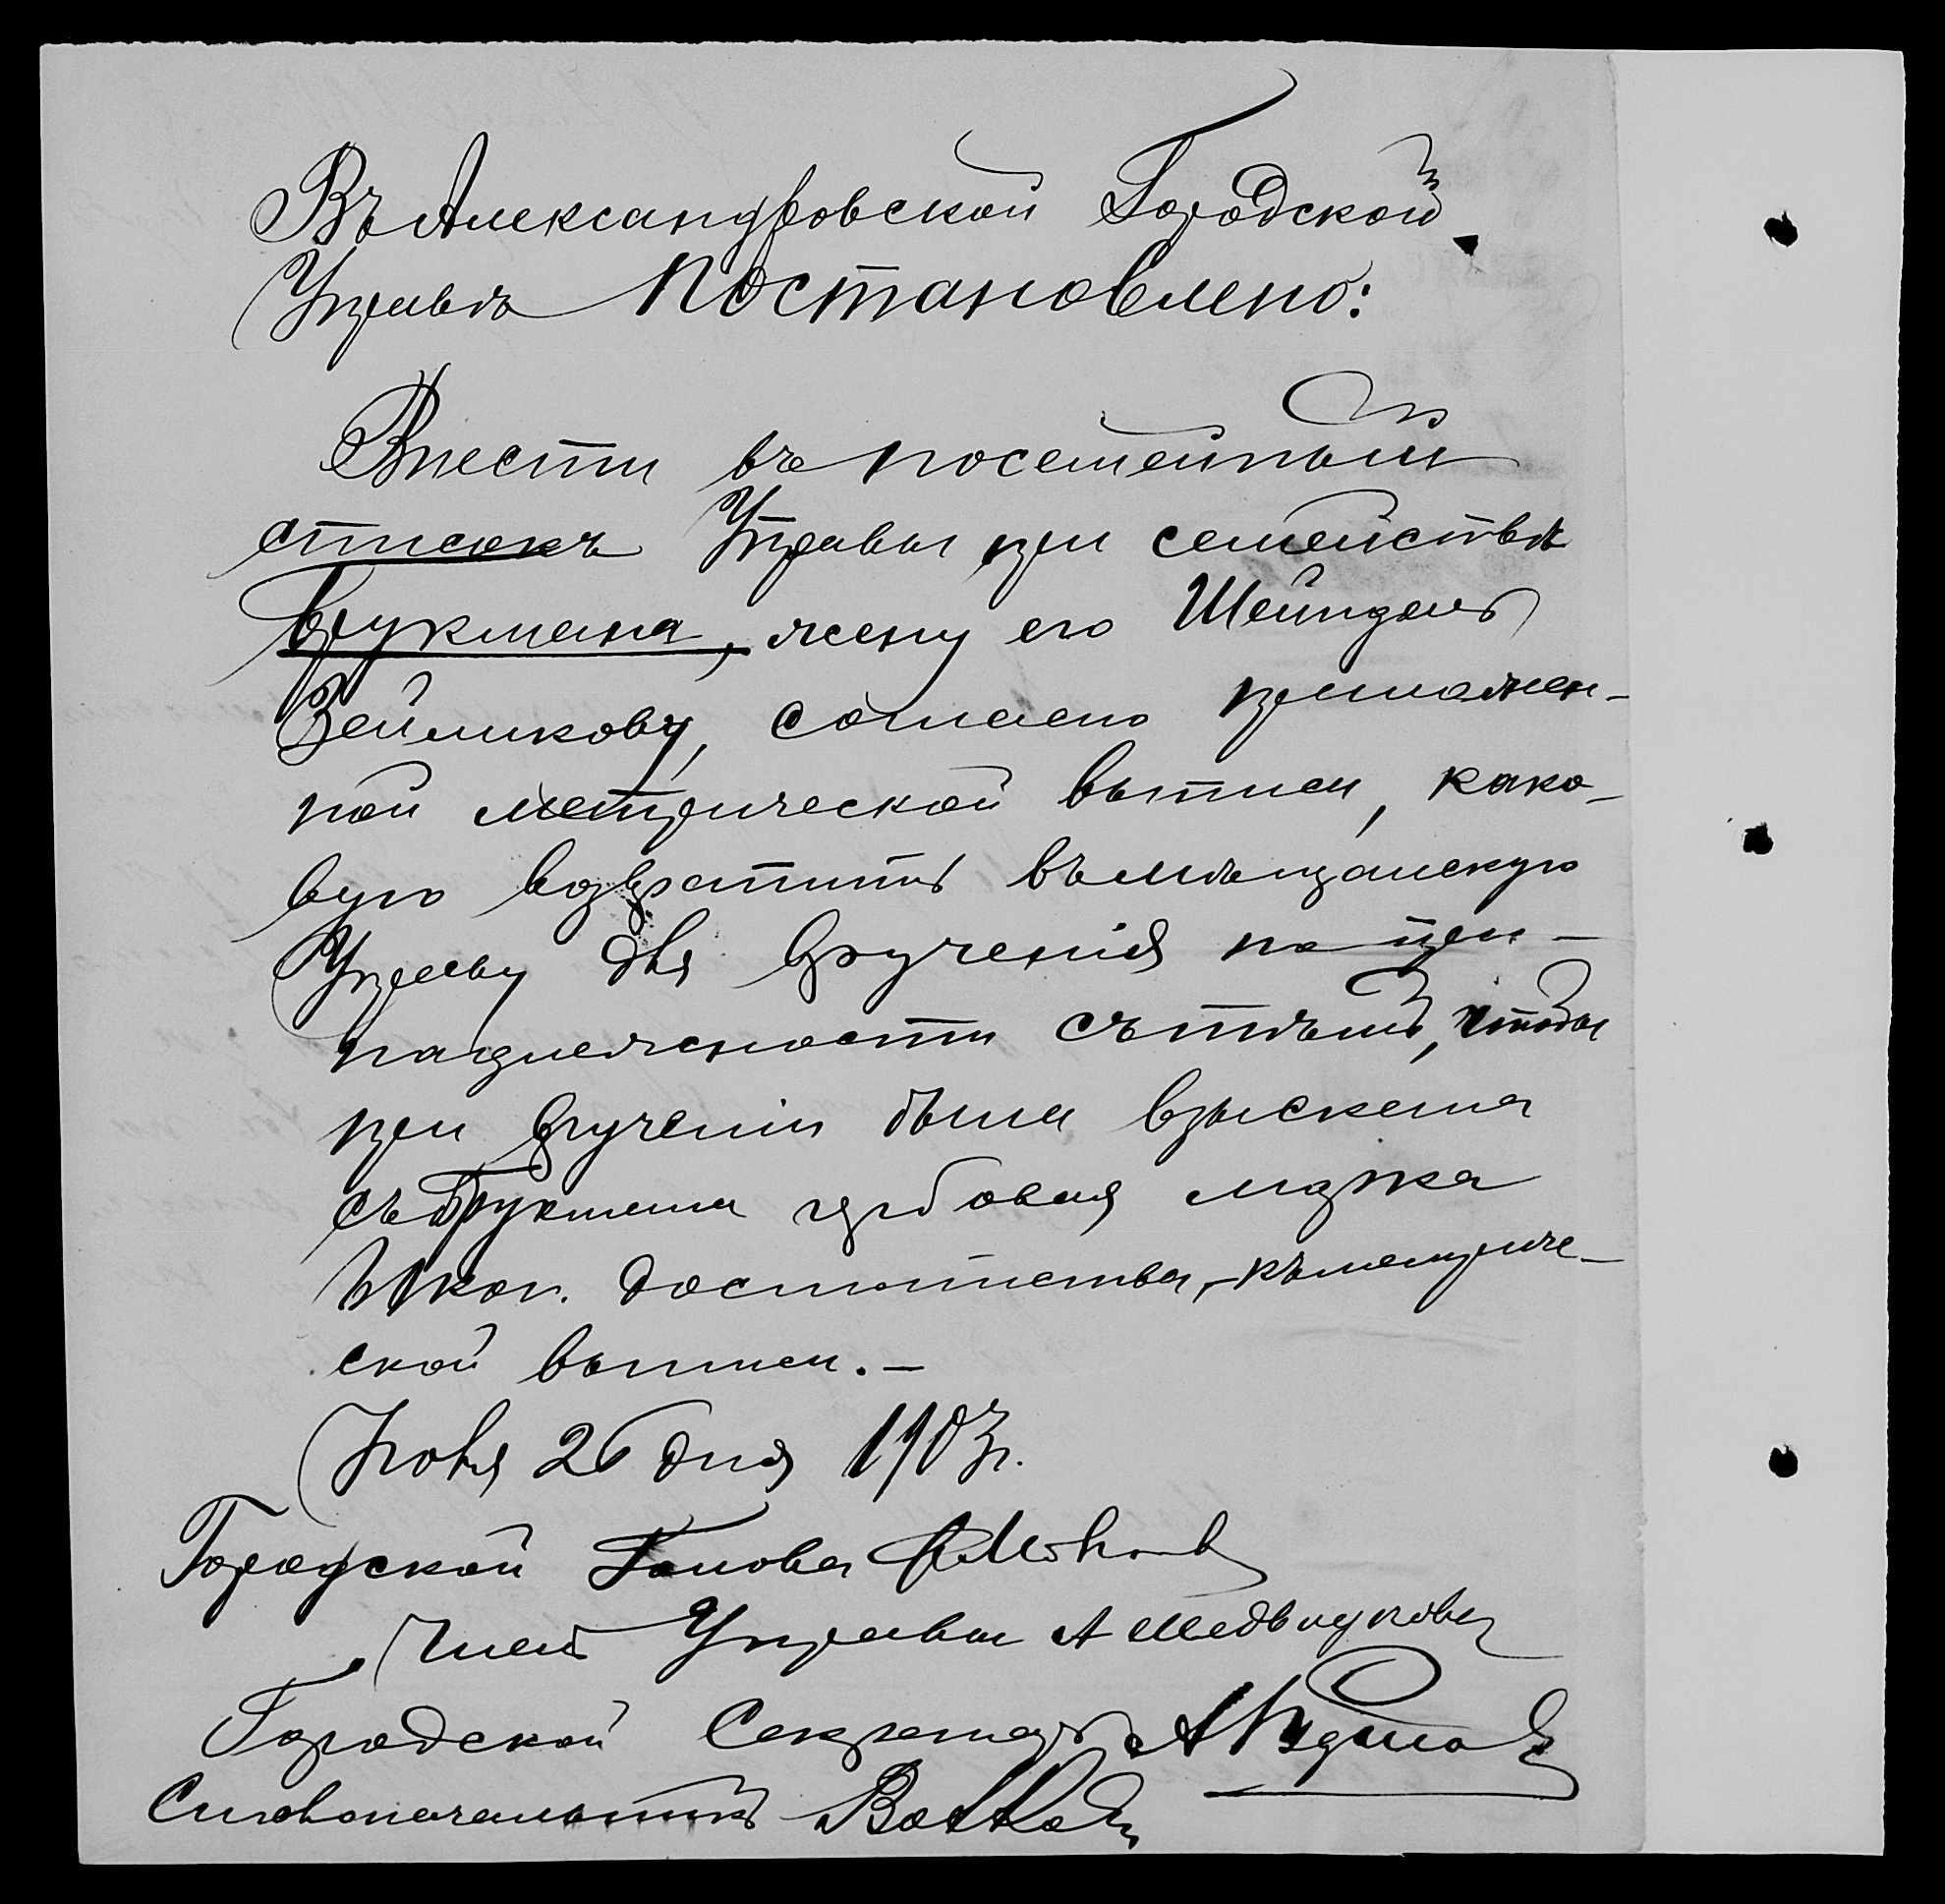 Въ Александровской Городской
Управѣ Постановлено:
Внести въ посемейный
списокъ Управы при семействѣ
Брукмана, жену его Шейндель
Зейликову, согласно приложен-
ной метрической выписи, како-
вую возвратить въ Мѣщанскую
Управу для врученія по при-
надлежности съ тѣмъ, чтобы
при врученіи была взыскана
съ Брукмана гербовая марка
коп. достоинства, - къ метриче-
ской выписи. -
Іюля 26 дня 1903 г.
Городской Голова
Членъ Управы А
Городской Секретарь А
Столоначальникъ